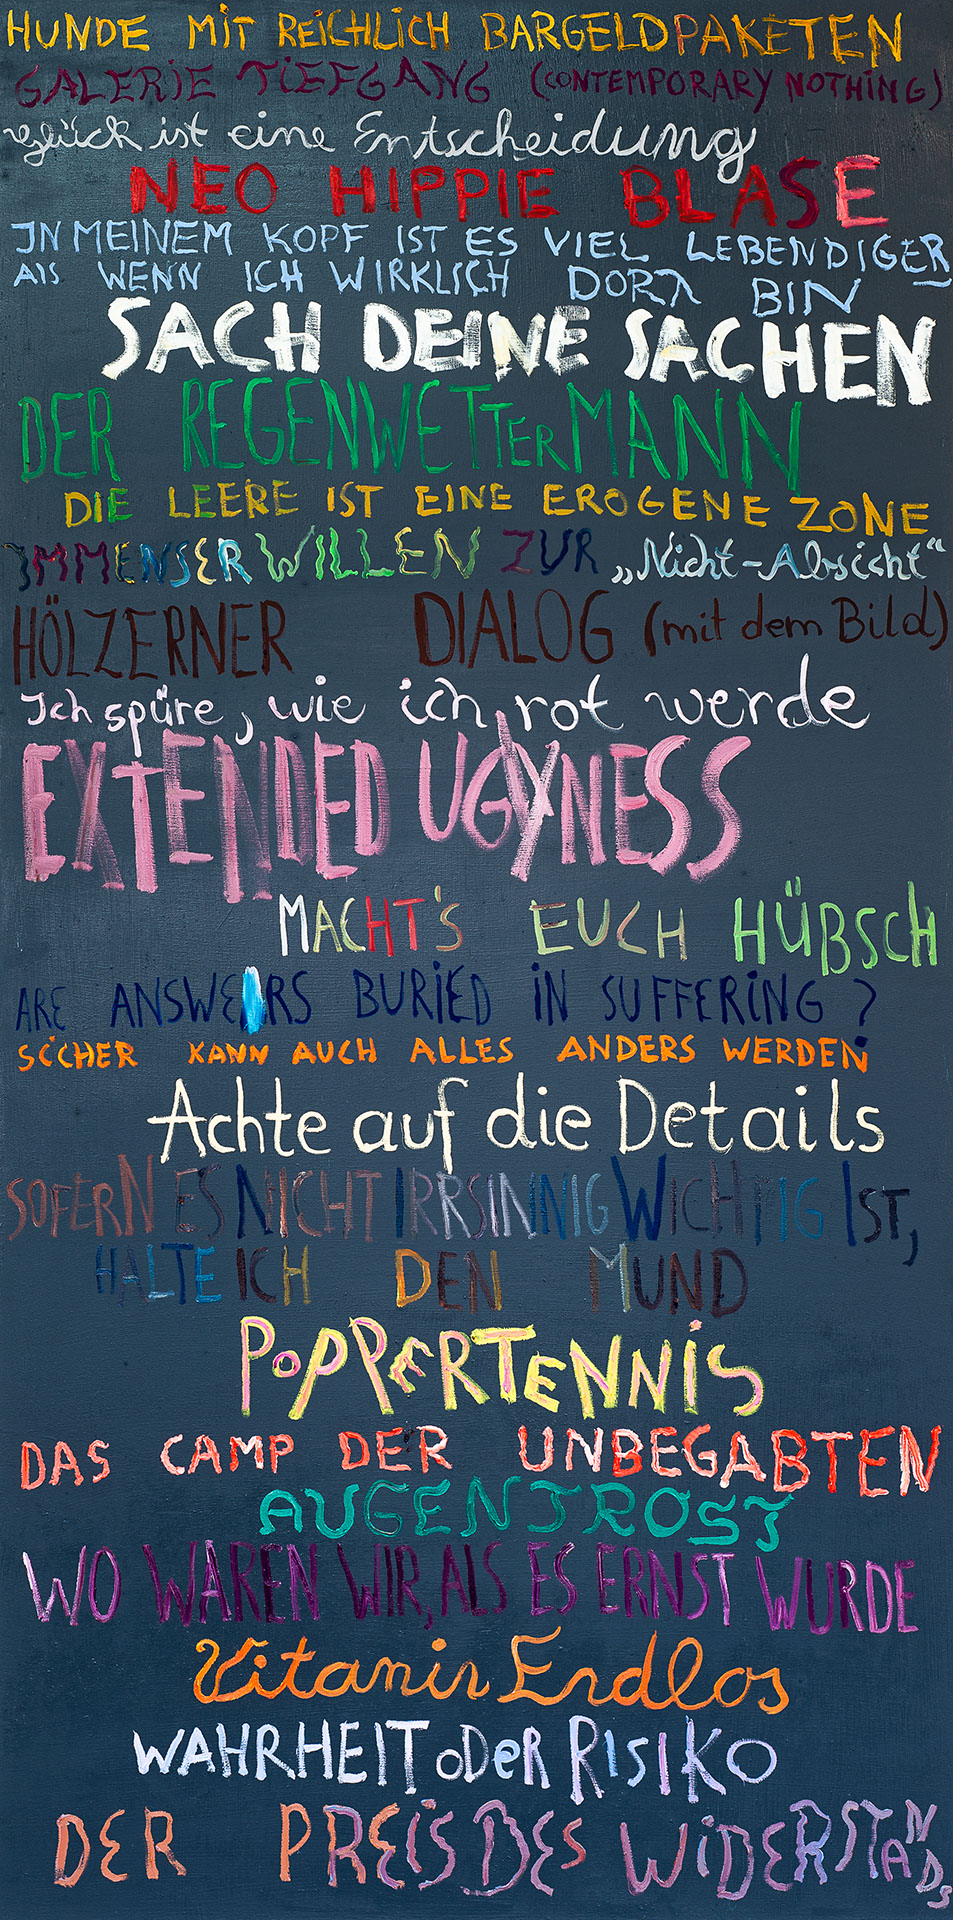 HUNDE MIT REICHLICH BARGELDPAKETEN
GALERIE TIEFGANG (CONTEMPORARY NOTHING)
Glück ist eine Entscheidung
NEO HIPPIE BLASE
IN MEINEM KOPF IST ES VIEL LEBENDIGER
ALS WENN ICH WIRKLICH DORT BIN
SACH DEINE SACHEN
DER REGENWETTERMANN
DIE LEERE IST EINE EROGENE ZONE
IMMENSER WILLEN ZUR „Nicht-Absicht“
HÖLZERNER DIALOG (mit dem Bild)
Ich spüre, wie ich rot werde
EXTENDED UGYNESS
MACHT'S EUCH HÜBSCH
ARE ANSWERS BURIED IN SUFFERING?
SICHER KANN AUCH ALLES ANDERS WERDEN
Achte auf die Details
SOFERN ES NICHT IRRSINNIG WICHTIG IST,
HALTE ICH DEN MUND
POPPERTENNIS
DAS CAMP DER UNBEGABTEN
AUGENTROST
WO WAREN WIR, ALS ES ERNST WURDE
Vitamin Endlos
WAHRHEIT ODER RISIKO
DER PREIS DES WIDERSTANDS